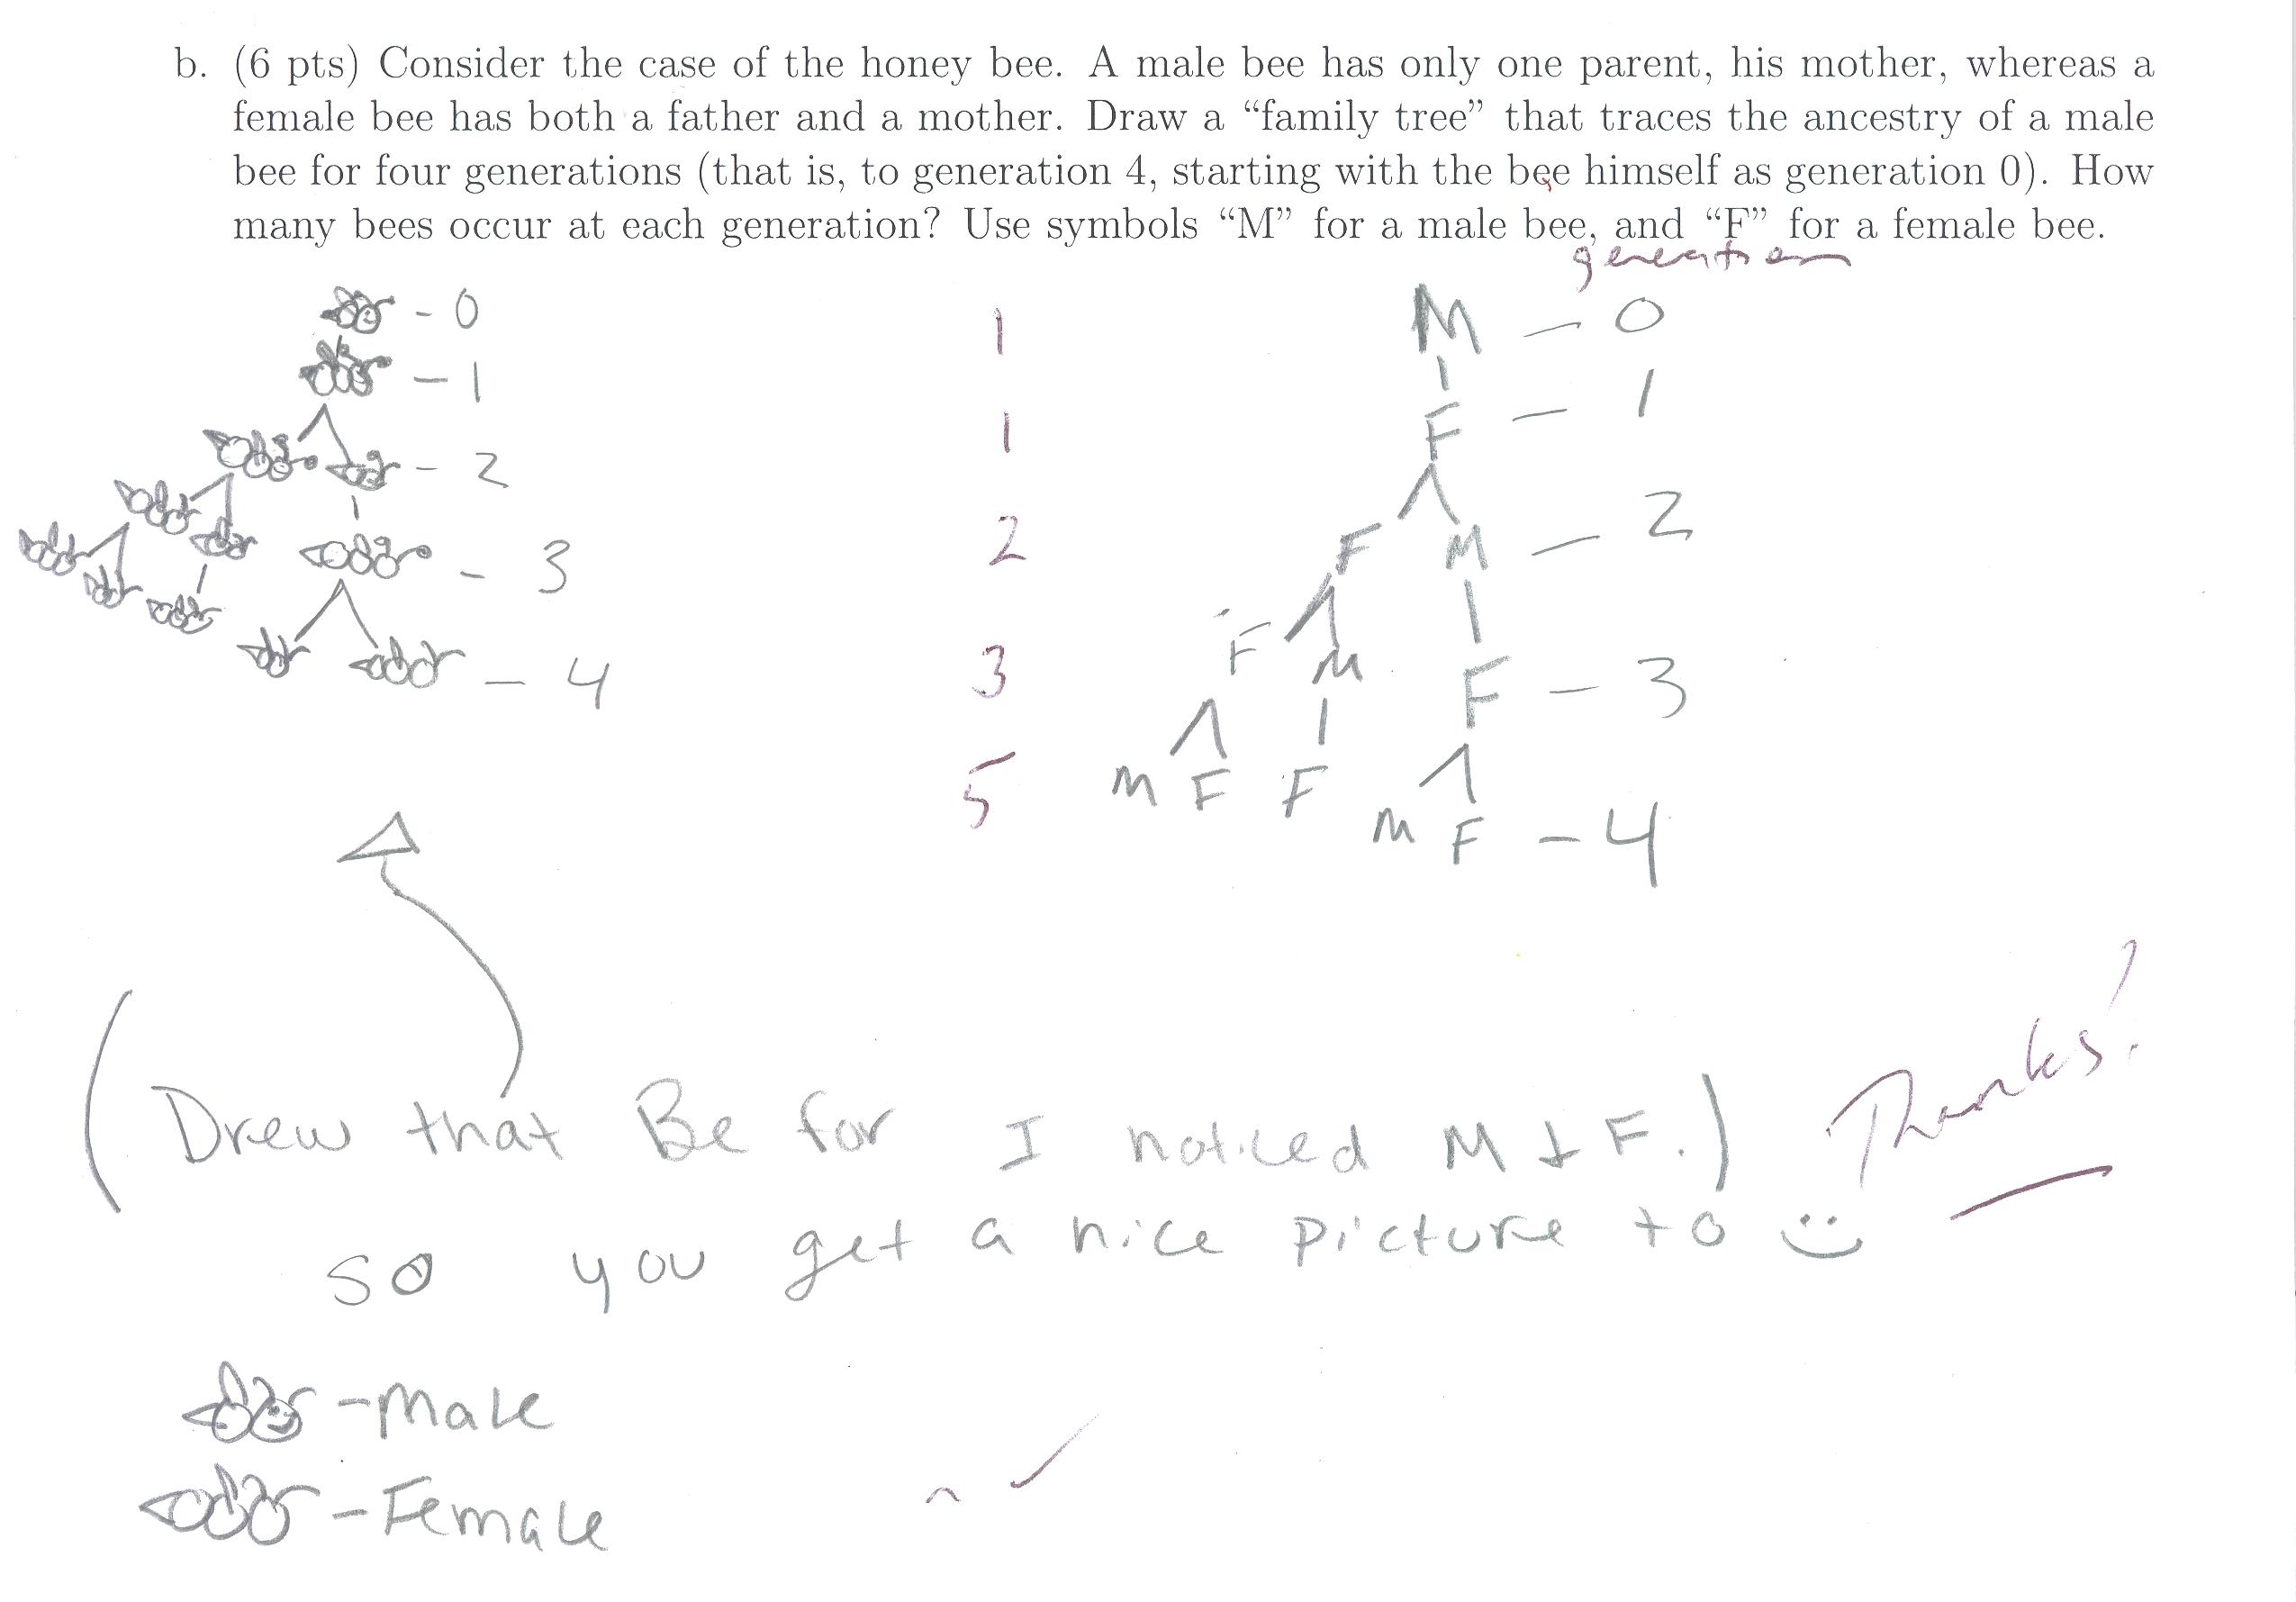 b. (6 pts) Consider the case of the honey bee. A male bee has only one parent, his mother, whereas a
female bee has both a father and a mother. Draw a “family tree” that traces the ancestry of a male
bee for four generations (that is, to generation 4, starting with the bee himself as generation 0). How
many bees occur at each generation? Use symbols “M” for a male bee, and “F” for a female bee.
generation
- 0
- 1
- 2
- 3
- 4
1
1
2
3
5
M - 0
F - 1
F M - 2
F M F - 3
M F F M F - 4
(Drew that Be for I noticed M & F.)
Thanks!
so you get a nice picture to
- Male
- Female